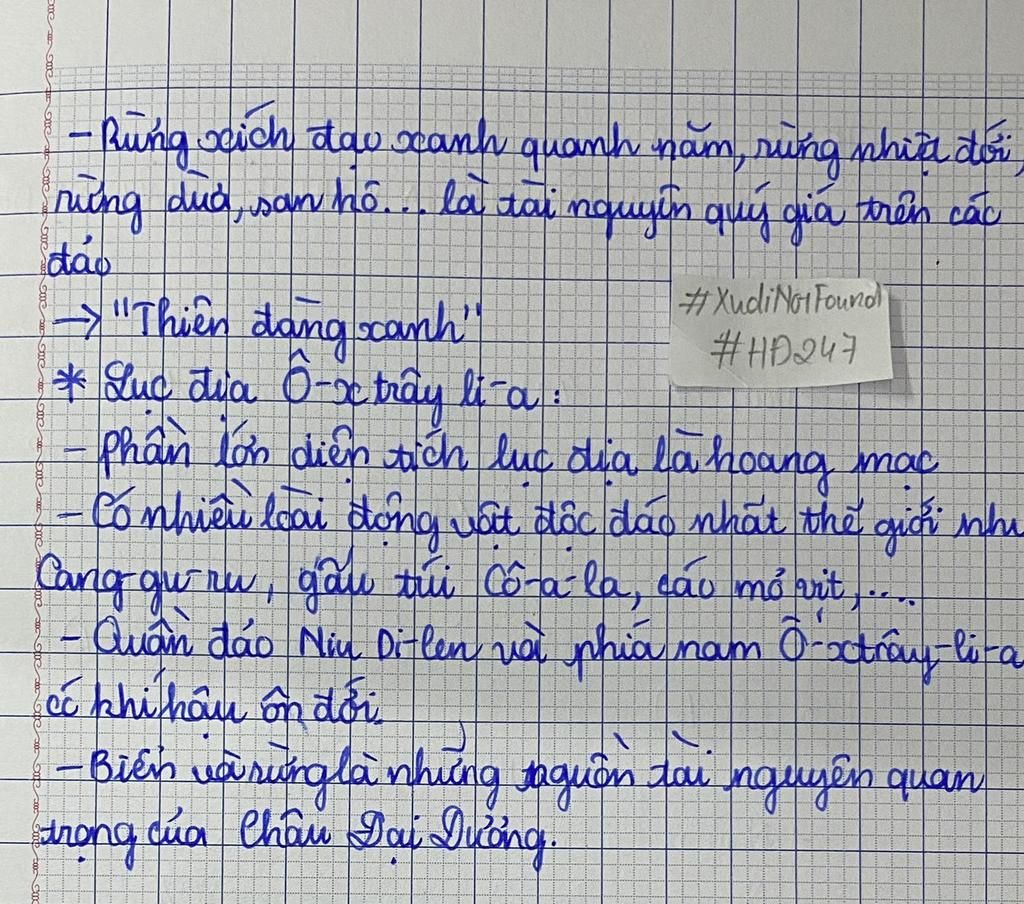 - Rừng xích đạo xanh quanh năm, rừng nhiệt đới,
rừng dừa, san hô... là tài nguyên quý giá trên các
đảo
→ "Thiên đàng xanh"
#XudiNotFound
#HĐ247
* Lục địa Ô-xtrây li-a :
- Phần lớn diện tích lục địa là hoang mạc
- Có nhiều loài động vật độc đáo nhất thế giới như
Cang-gu-ru, gấu túi Cô-a-la, cáo mỏ vịt,....
- Quần đảo Niu Di-len và phía nam Ô-xtrây-li-a
có khí hậu ôn đới.
- Biển và rừng là những nguồn tài nguyên quan
trọng của Châu Đại Dương.